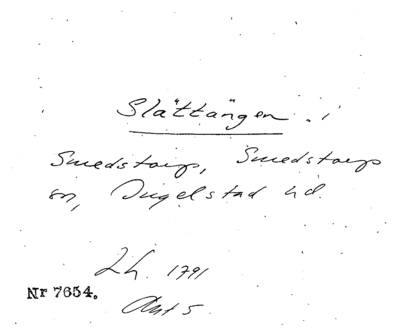 Slättängen i
Smedstorp, Smedstorp
sn, Ingelstad hd.
Lh. 1791
Nr 7654.
Akt 5